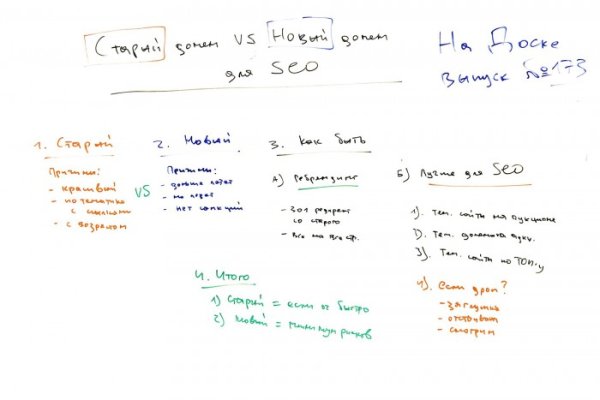 Старый домен VS Новый домен
для SEO
На Доске
выпуск №173
1. Старый
Причины:
- красивый
- по тематике
с ссылками
- с возрастом
VS
2. Новый
Причины:
- дольше
- нет санкций
3. Как быть
А) Ребрендинг
- 301 редирект
со старого
- все на все стр.
Б) Лучше для SEO
1). Тем. сайты на аукционе
2). Тем. домены
3). Тем. сайты по ТОП-у
4). если дроп?
- загрузив
- отстоять
- смотрим
4. Итого
1) Старый = если ог быстро
2) Новый = минимум рисков